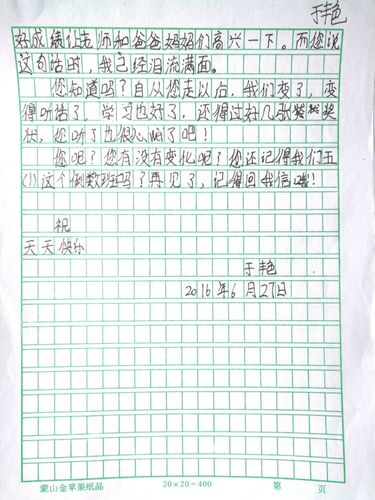 于丰色
好成绩让老师和爸爸妈妈们高兴一下。而您说
这句话时，我已经泪流满面。
您知道吗？自从您走以后，我们变了，变
得听话了，学习也好了，还得过好几张奖
状，您听了也很心  了吧！
您吧？您有没有变化吧？您还记得我们五
(1)这个倒数班吗？再见了，记得回我信哦！
祝
天天快乐
于丰色
2016年6月27日
蒙山金苹果纸品 20×20=400 第 页